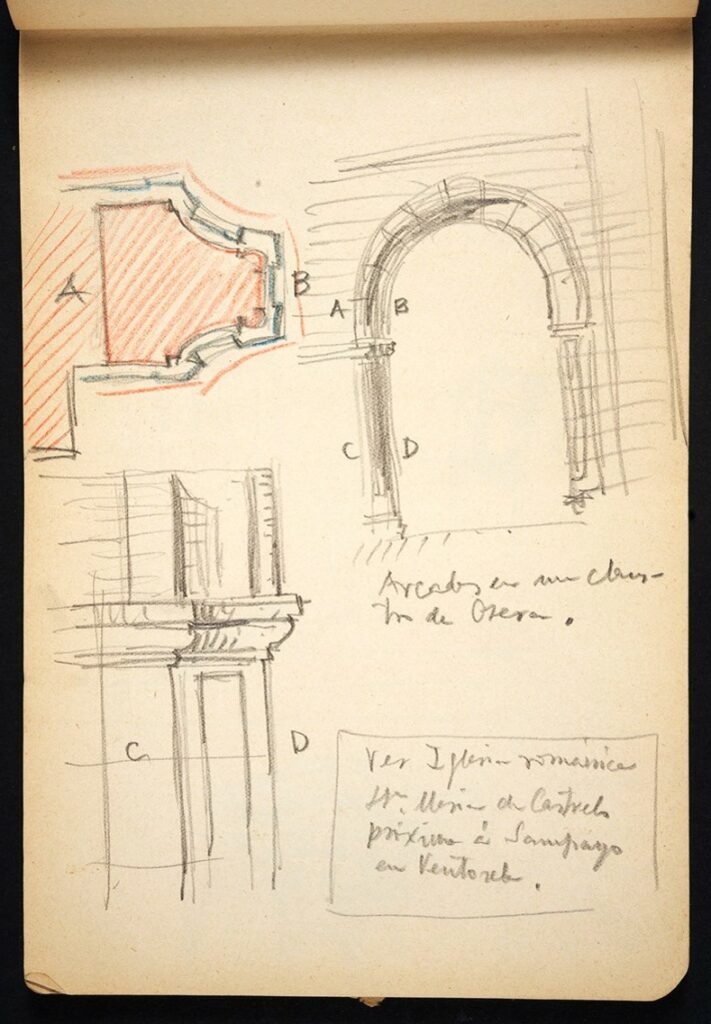 A
B
A
B
C
D
Arcadas en un claus-
tro de Osera.
C
D
Ver Iglesia románica
Sta. María de Castrelo
próxima á Sampayo
en Ventosela.